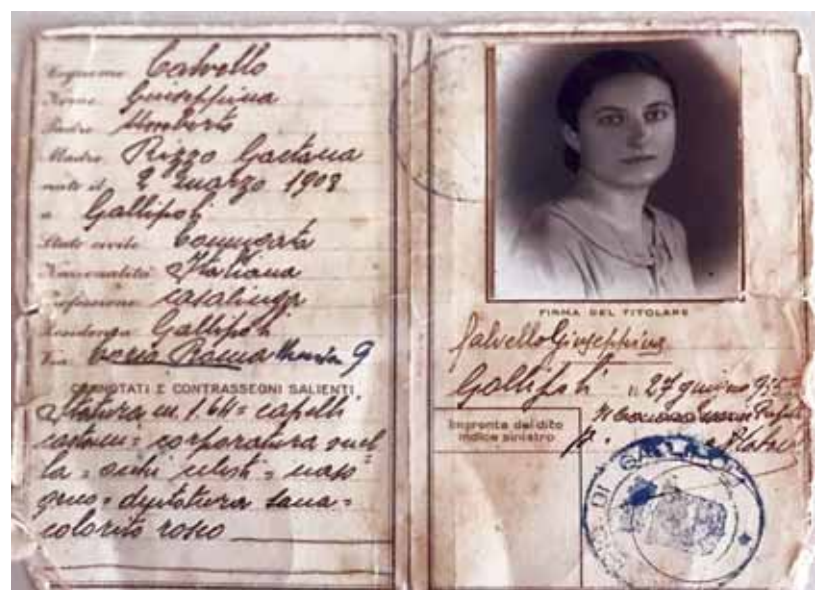 Cognome Calvello
Nome Giuseppina
Padre Umberto
Madre Rizzo Gaetana
nato il 2 marzo 1908
a Gallipoli
Stato civile Coniugata
Nazionalità Italiana
Professione casalinga
Residenza Gallipoli
Via Corso Roma 9
CONNOTATI E CONTRASSEGNI SALIENTI
Statura m. 1.64 = capelli
castani = corporatura snel
la = occhi celesti = naso
greco = dentatura sana =
colorito roseo
FIRMA DEL TITOLARE
Calvello Giuseppina
Gallipoli li 27 giugno
Impronta del dito
indice sinistro
DI GALLIPOLI